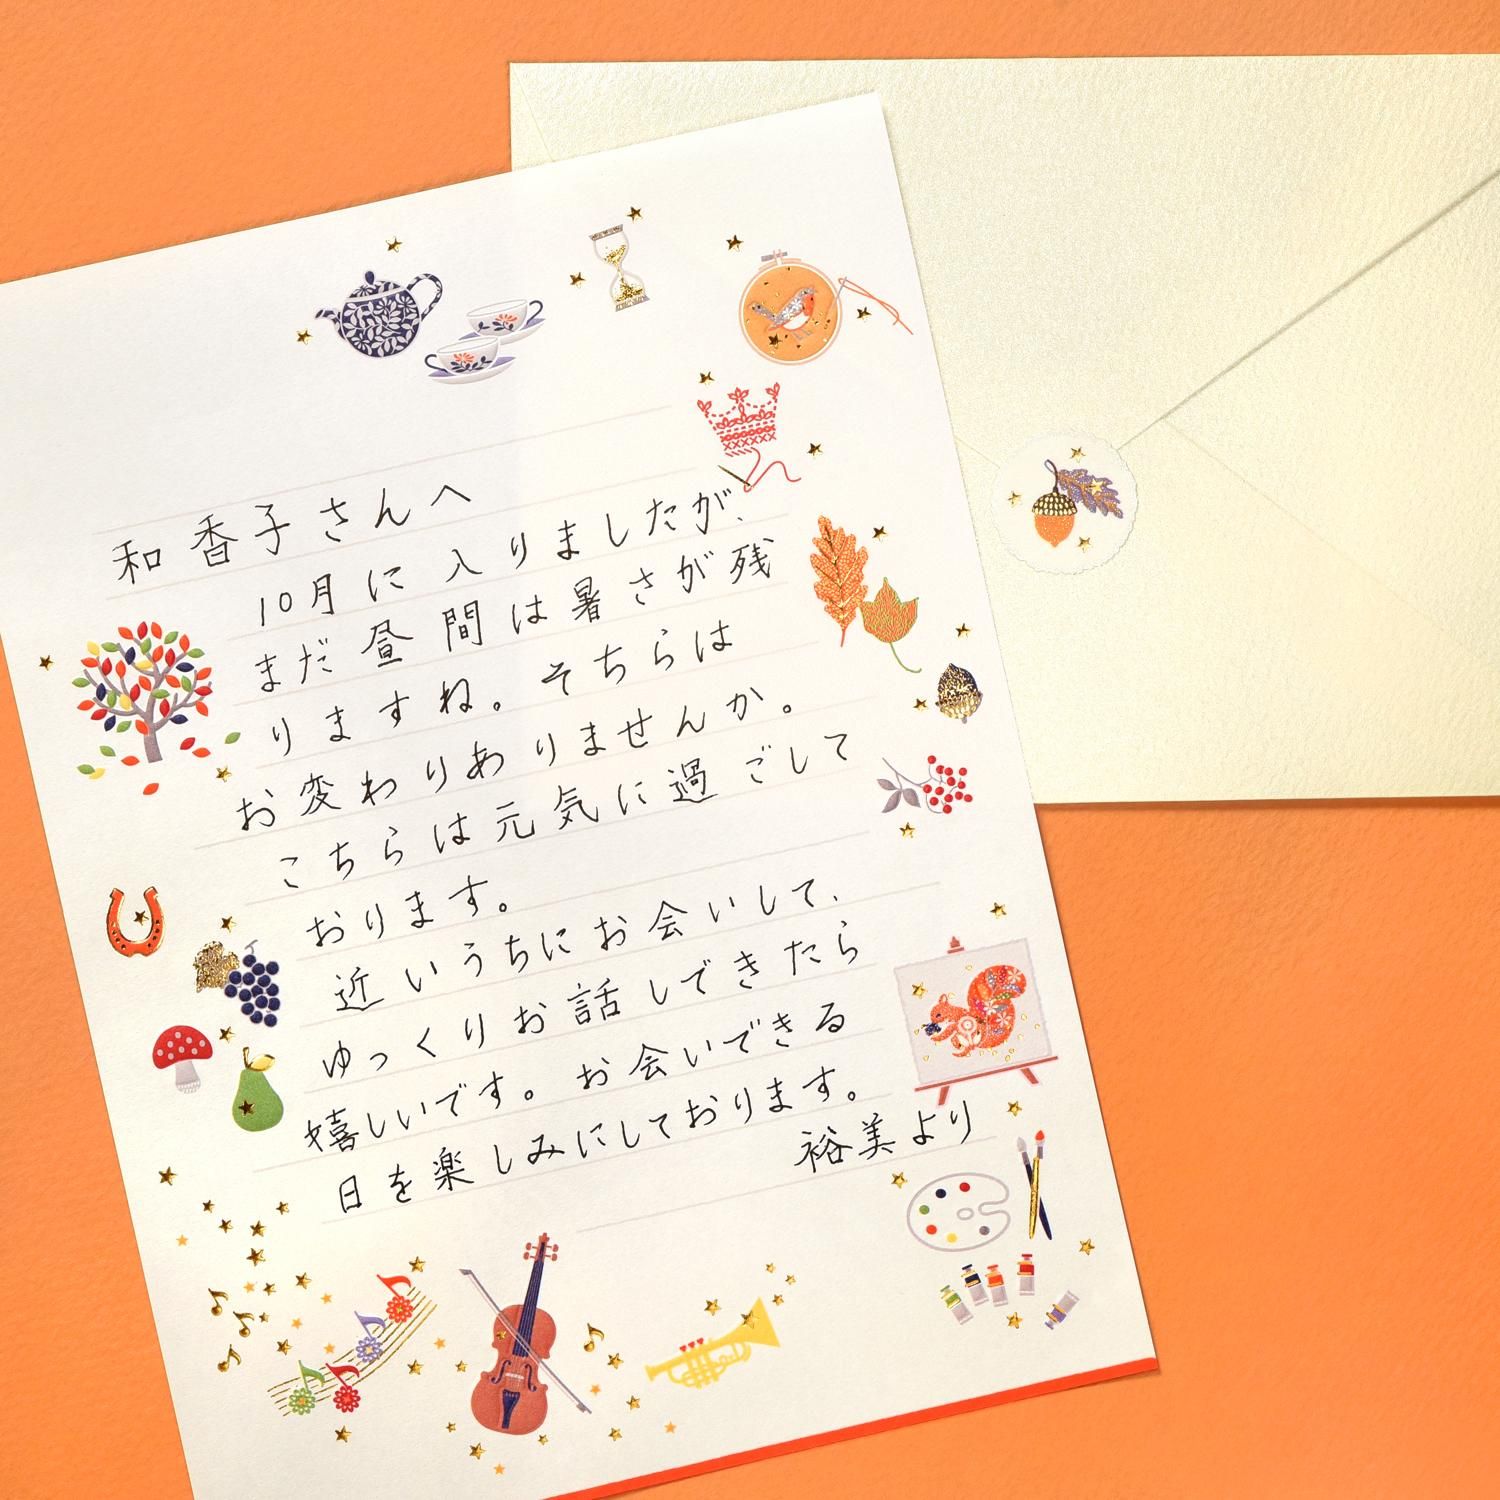 和香子さんへ
10月に入りましたが、
まだ昼間は暑さが残
りますね。そちらは
お変わりありませんか。
こちらは元気に過ごして
おります。
近いうちにお会いして、
ゆっくりお話しできたら
嬉しいです。お会いできる
日を楽しみにしております。
裕美より